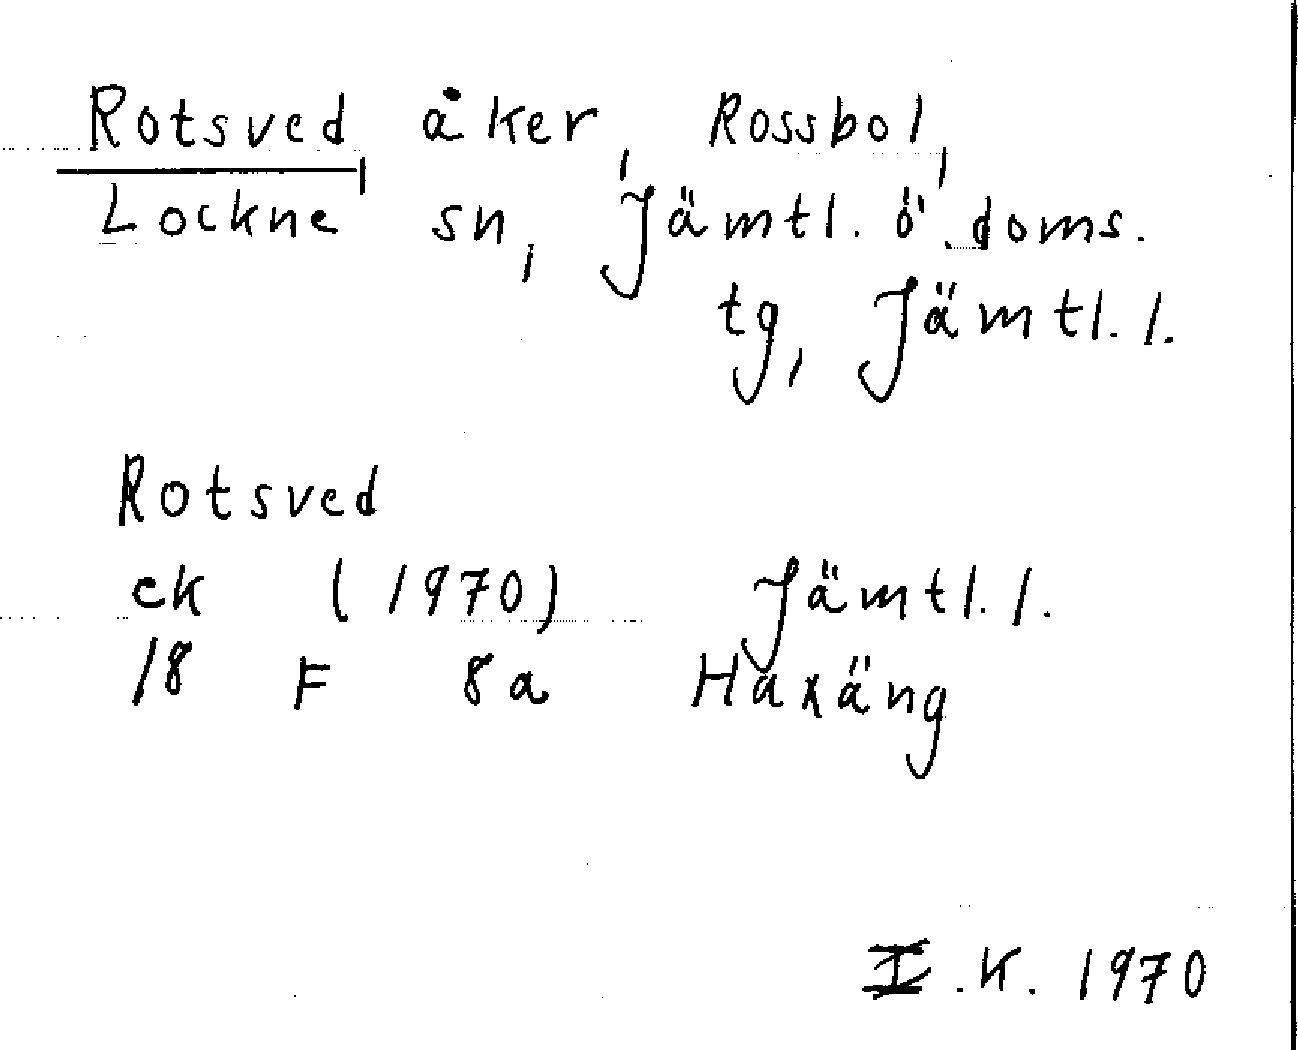 Rotsved, åker, Rossbol,
Lockne sn, Jämtl. ö. doms.
tg, Jämtl. l.
Rotsved
ek (1970) Jämtl. l.
18 F 8a Haxäng
I.K. 1970